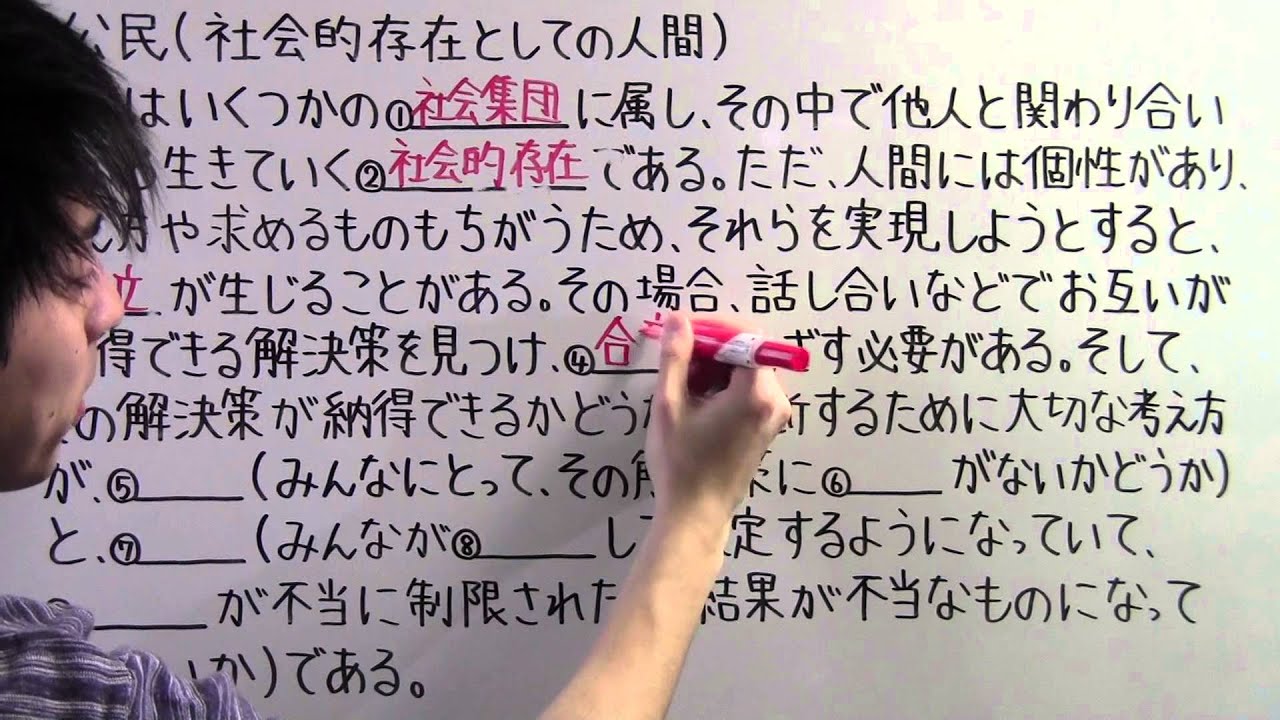 公民(社会的存在としての人間)
はいくつかの①社会集団に属し、その中で他人と関わり合い
生きていく②社会的存在である。ただ、人間には個性があり、
方や求めるものもちがうため、それらを実現しようとすると、
立が生じることがある。その場合、話し合いなどでお互いが
得できる解決策を見つけ、④合 ざす必要がある。そして、
の解決策が納得できるかどう 断するために大切な考え方
が、⑤____(みんなにとって、その解 策に⑥____がないかどうか)
と、⑦____(みんなが⑧____し 定するようになっていて、
____が不当に制限された 結果が不当なものになって
いか)である。